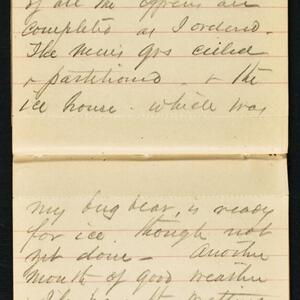 of all the
completed as I ordered.
The Men's qrs ceiled
& partitioned - & the
ice house - which was
my bug bear, is ready
for ice though not
yet done - Another
month of good weather